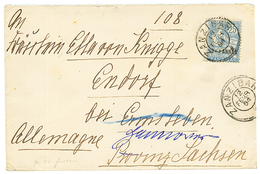 An
108
Fräulein Ella von Knigge
Endorf
bei Ermsleben
Hannover
Allemagne
Provinz Sachsen
ZANZIBAR
ZANZIBAR